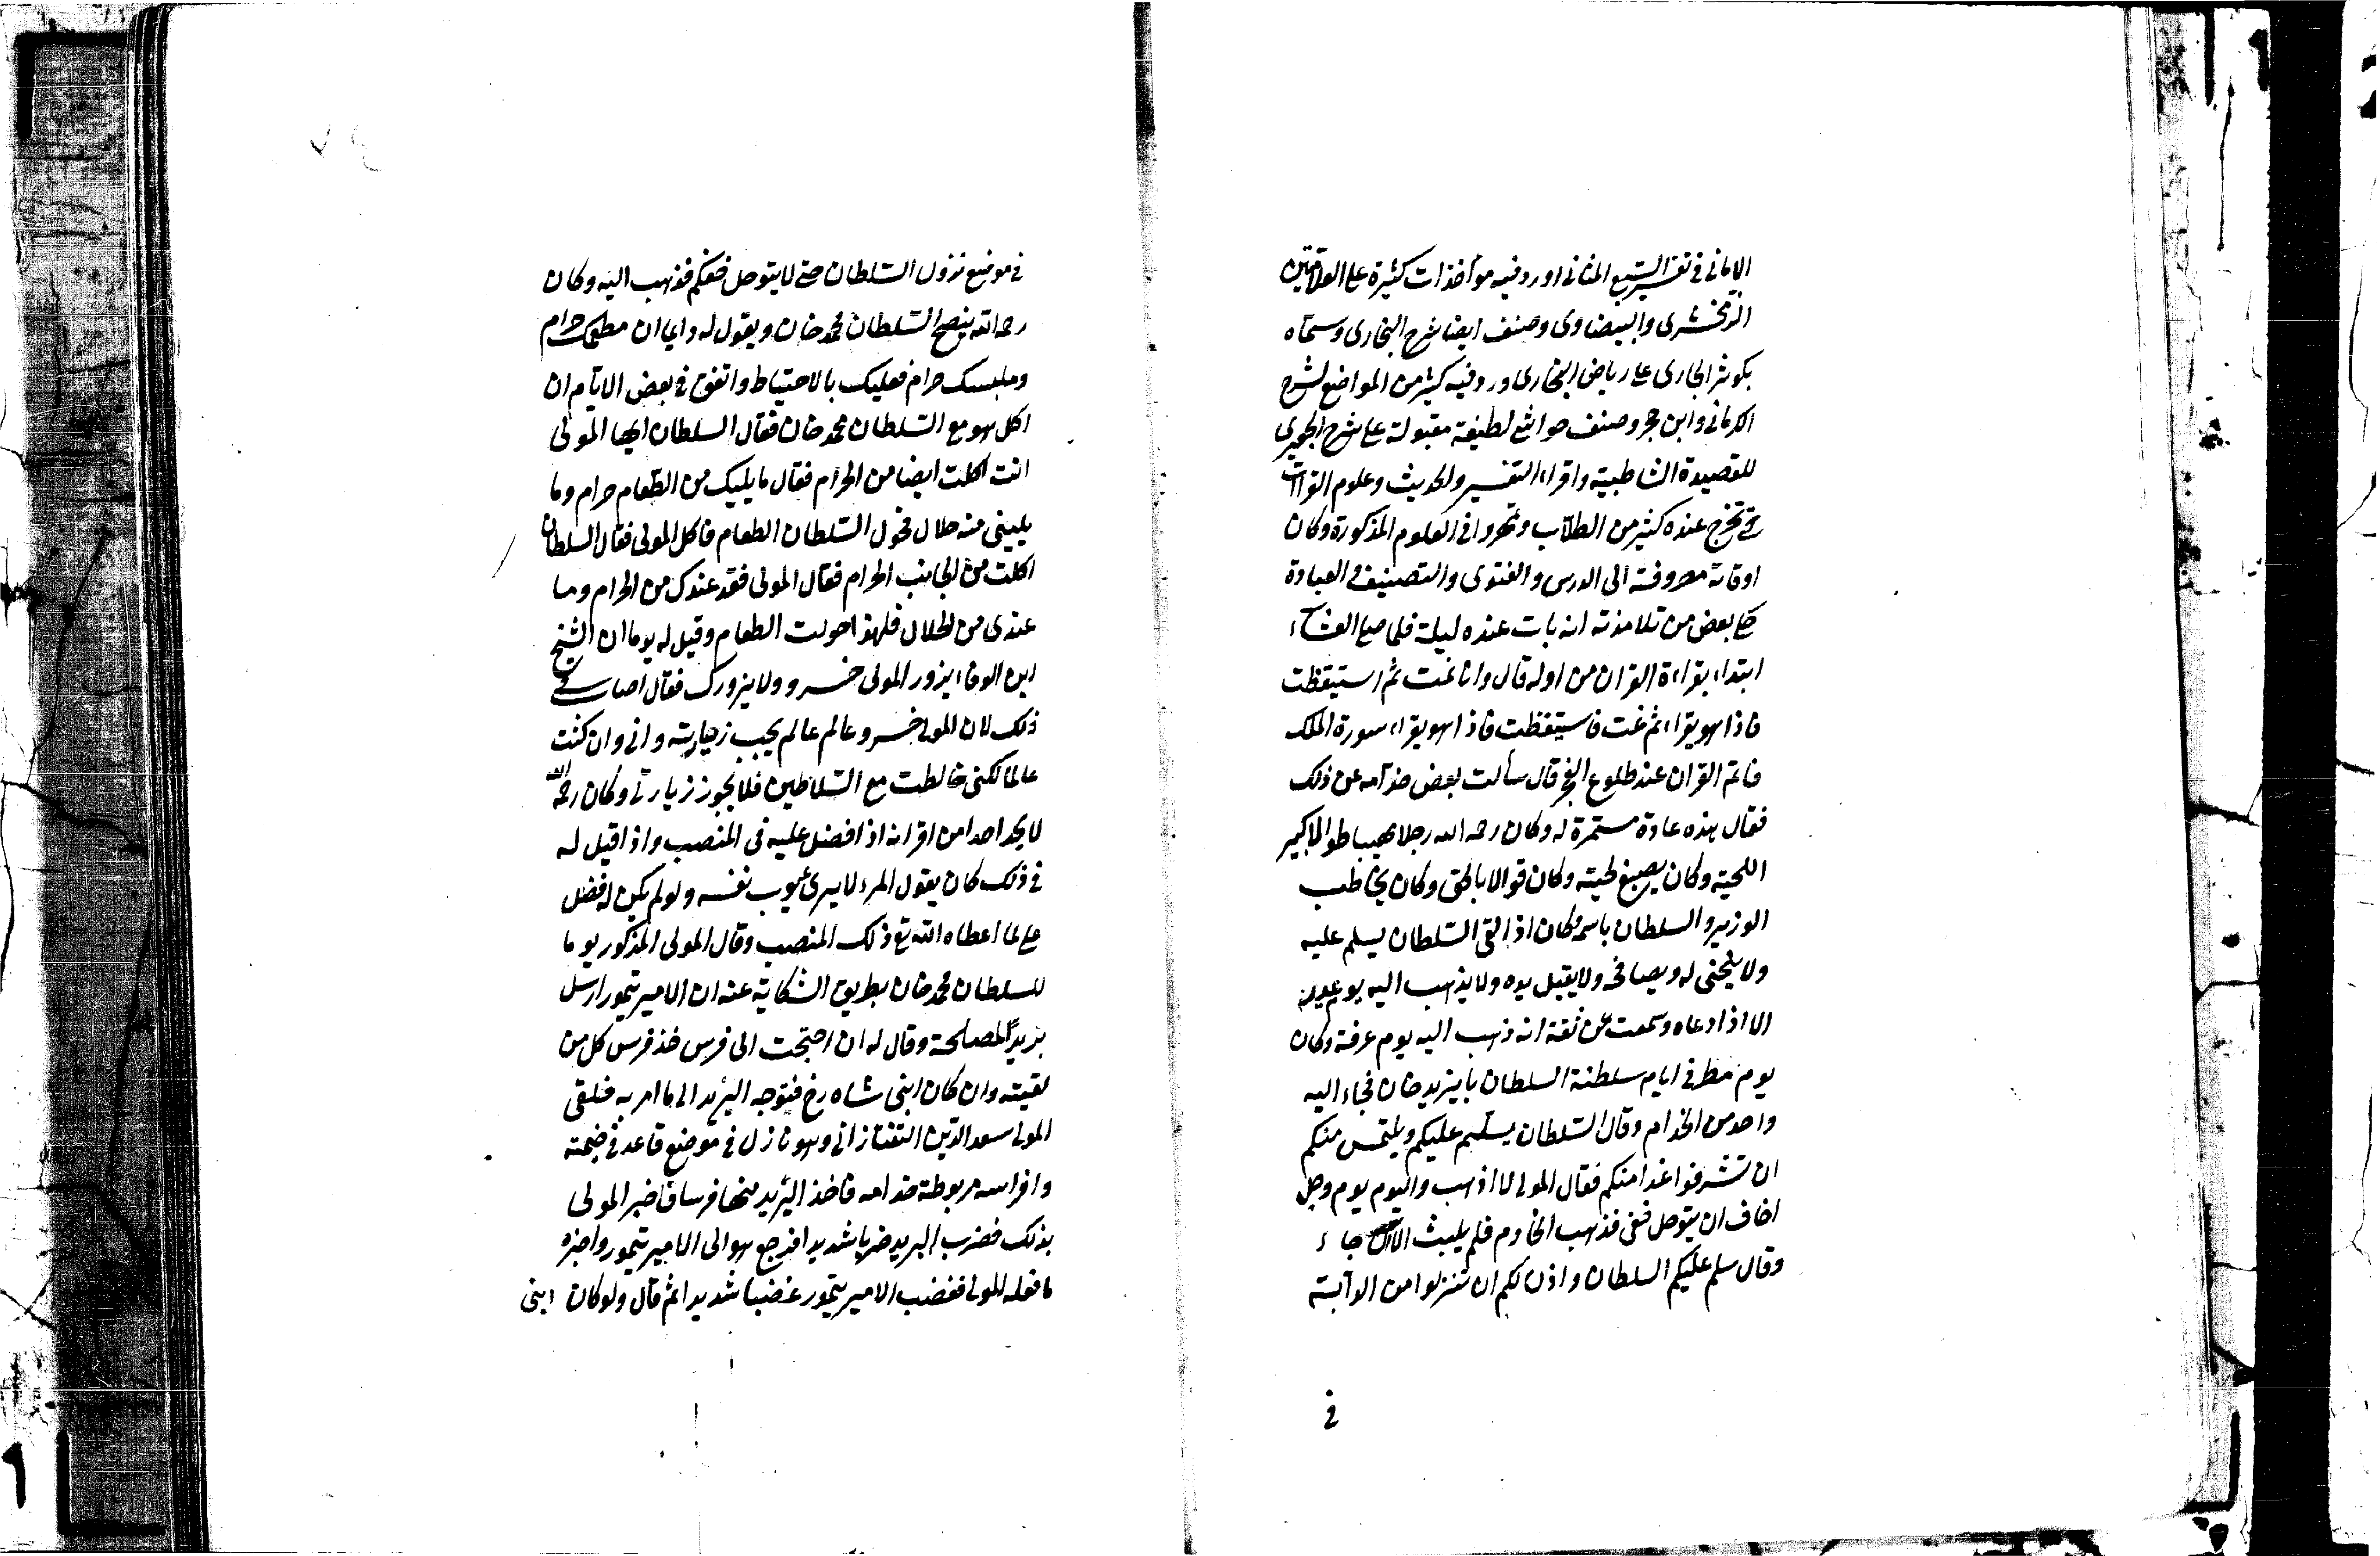 الامانى فى تفسير السبع المثانى اورد فيه مؤاخذات كثيرة على العلامتين
الزمخشرى والبيضاوى وصنف ايضا شرح البخارى وسماه
بكوثر الجارى على رياض البخارى ورد فيه كثير من المواضع لشرح
الكرمانى وابن حجر وصنف حواشى لطيفة مقبولة على شرح الجعبرى
للقصيدة الشاطبية واقراء التفسير والحديث وعلوم القرآن
حتى تخرج عنده كثير من الطلاب وتمهروا فى العلوم المذكورة وكان
اوقاته مصروفة الى الدرس والفتوى والتصنيف والعبادة
حكى بعض من تلامذته انه بات عنده ليلة فلما صلى العشاء
ابتداء بقراءة القران من اوله قال وانا نمت ثم استيقظت
فاذا هو يقراء ثم نمت فاستيقظت فاذا هو يقراء سورة الملك
فاتم القران عند طلوع الفجر قال سألت بعض خدامه عن ذلك
فقال هذه عادة مستمرة له وكان رحمه الله رجلا مهيبا طوالا كبير
اللحية وكان يصبغ لحيته وكان قوالا بالحق وكان يخاطب
الوزير والسلطان باسمه وكان اذا لقى السلطان يسلم عليه
ولا ينحنى له ويصافحه ولا يقبل يده ولا يذهب اليه يوم عيد
الا اذا دعاه وسمعت عن ثقة انه ذهب اليه يوم عرفة وكان
يوم مطر فى ايام سلطنة السلطان بايزيد خان فجاء اليه
واحد من الخدام وقال السلطان يسلم عليكم ويلتمس منكم
ان تشرفوا غدا منكم فقال المولى لا اذهب واليوم يوم وحل
اخاف ان يتوحل خفى فذهب الخادم فلم يلبث الا ان جاء
وقال سلم عليكم السلطان واذن لكم ان تنزلوا من الدابة
فى
فى موضع نزول السلطان حتى لا يتوحل خفكم فذهب اليه وكان
رحمه الله ينصح السلطان محمد خان ويقول له دايما ان مطعمك حرام
وملبسك حرام فعليك بالاحتياط واتفق فى بعض الايام ان
اكل هو مع السلطان محمد خان فقال السلطان ايها المولى
انت اكلت ايضا من الحرام فقال ما يليك من الطعام حرام وما
يلينى منه حلال فحول السلطان الطعام فاكل المولى فقال السلطان
اكلت من الجانب الحرام فقال المولى نفد عندك من الحرام وما
عندى من الحلال فلهذا حولت الطعام وقيل له يوما ان الشيخ
ابن الوفاء يزور المولى خسرو ولا يزورك فقال اصاب فى
ذلك لان المولى خسرو عالم عالم يجب زيارته وانى وان كنت
عالما لكنى خالطت مع السلاطين فلا يجوز زيارتى وكان رحمه الله
لا يحسد احدا من اقرانه اذا فضل عليه فى المنصب واذا قيل له
فى ذلك كان يقول المرء لا يرى عيوب نفسه ولو لم يكن له فضل
على لما اعطاه الله تع ذلك المنصب وقال المولى المذكور يوما
للسلطان محمد خان بطريق الشكاية عنه ان الامير تيمور ارسل
بريدا لمصلحة وقال له ان احتجت الى فرس خذ فرس كل من
لقيته وان كان ابنى شاه رخ فتوجه البريد الى ما امر به فلقى
المولى سعد الدين التفتازانى وهو نازل فى موضع قاعد فى خيمته
وافراسه مربوطة قدامه فاخذ البريد منها فرسا فاخبر المولى
بذلك فضرب البريد ضربا شديدا فرجع هو الى الامير تيمور واخبره
ما فعله المولى فغضب الامير تيمور غضبا شديدا ثم قال ولو كان ابنى